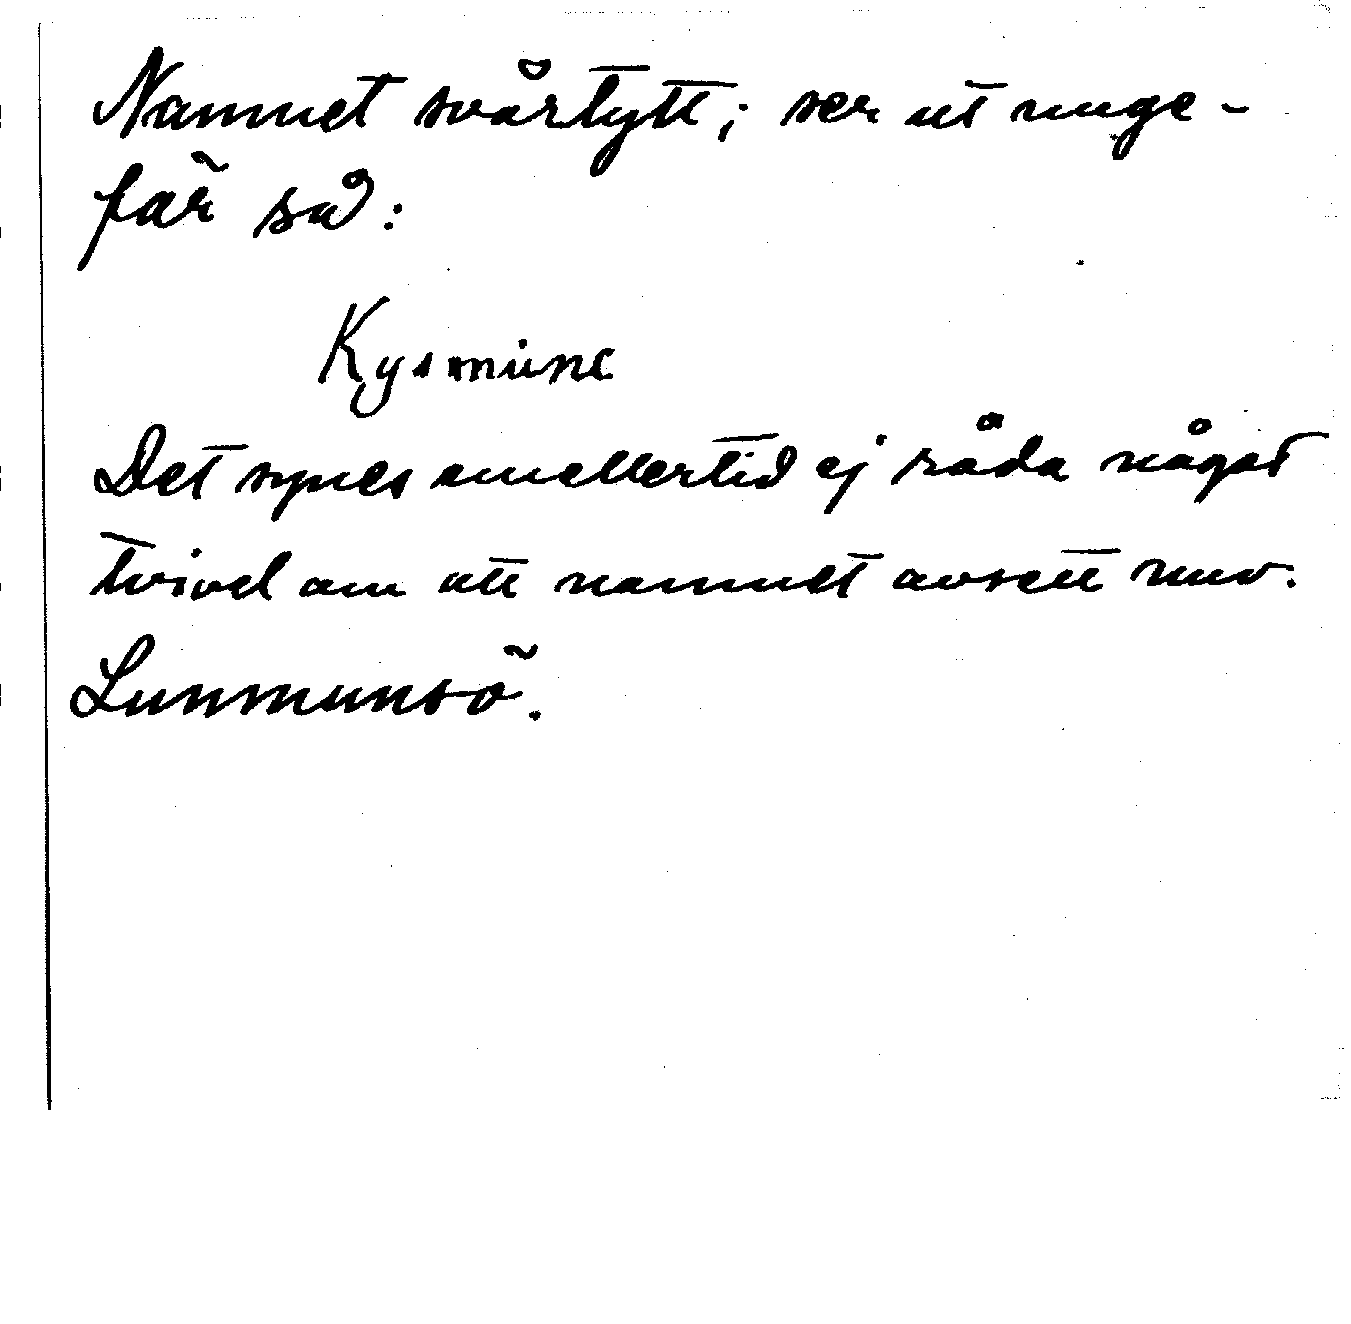 Namnet svårtytt; ser ut unge-
fär så:
Kysmune
Det synes emellertid ej råda något
tvivel om att namnet avsett nuv.
Lunmunsö.